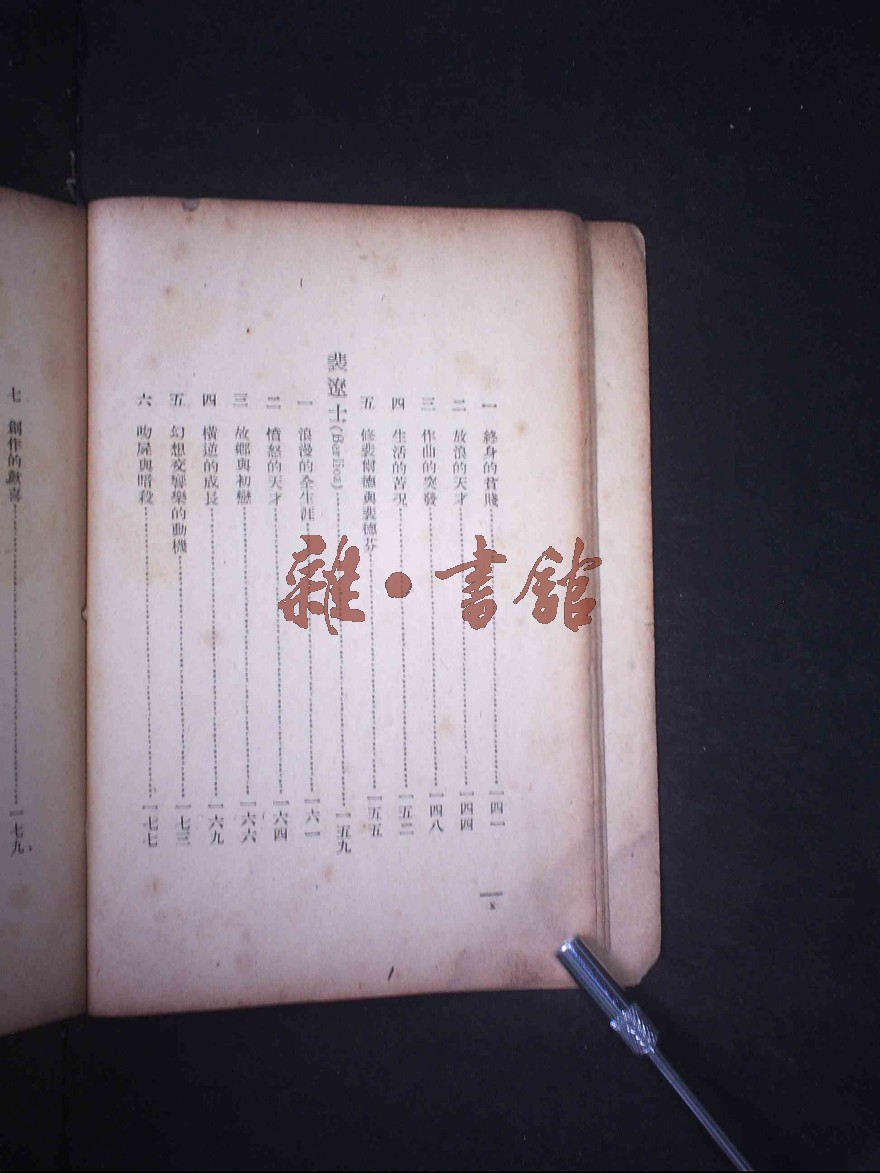 一　終身的貧賤……一四一
二　放浪的天才……一四四
三　作曲的突發……一四八
四　生活的苦況……一五二
五　修裴爾德與裴德芬……一五五
裴遼士(Berlioz)……一五九
一　浪漫的全生涯……一六一
二　憤怒的天才……一六四
三　故鄉與初戀……一六六
四　橫逆的成長……一六九
五　幻想交響樂的動機……一七三
六　吻屍與暗殺……一七七
x
七　創作的歡喜……一七九
雜·書館